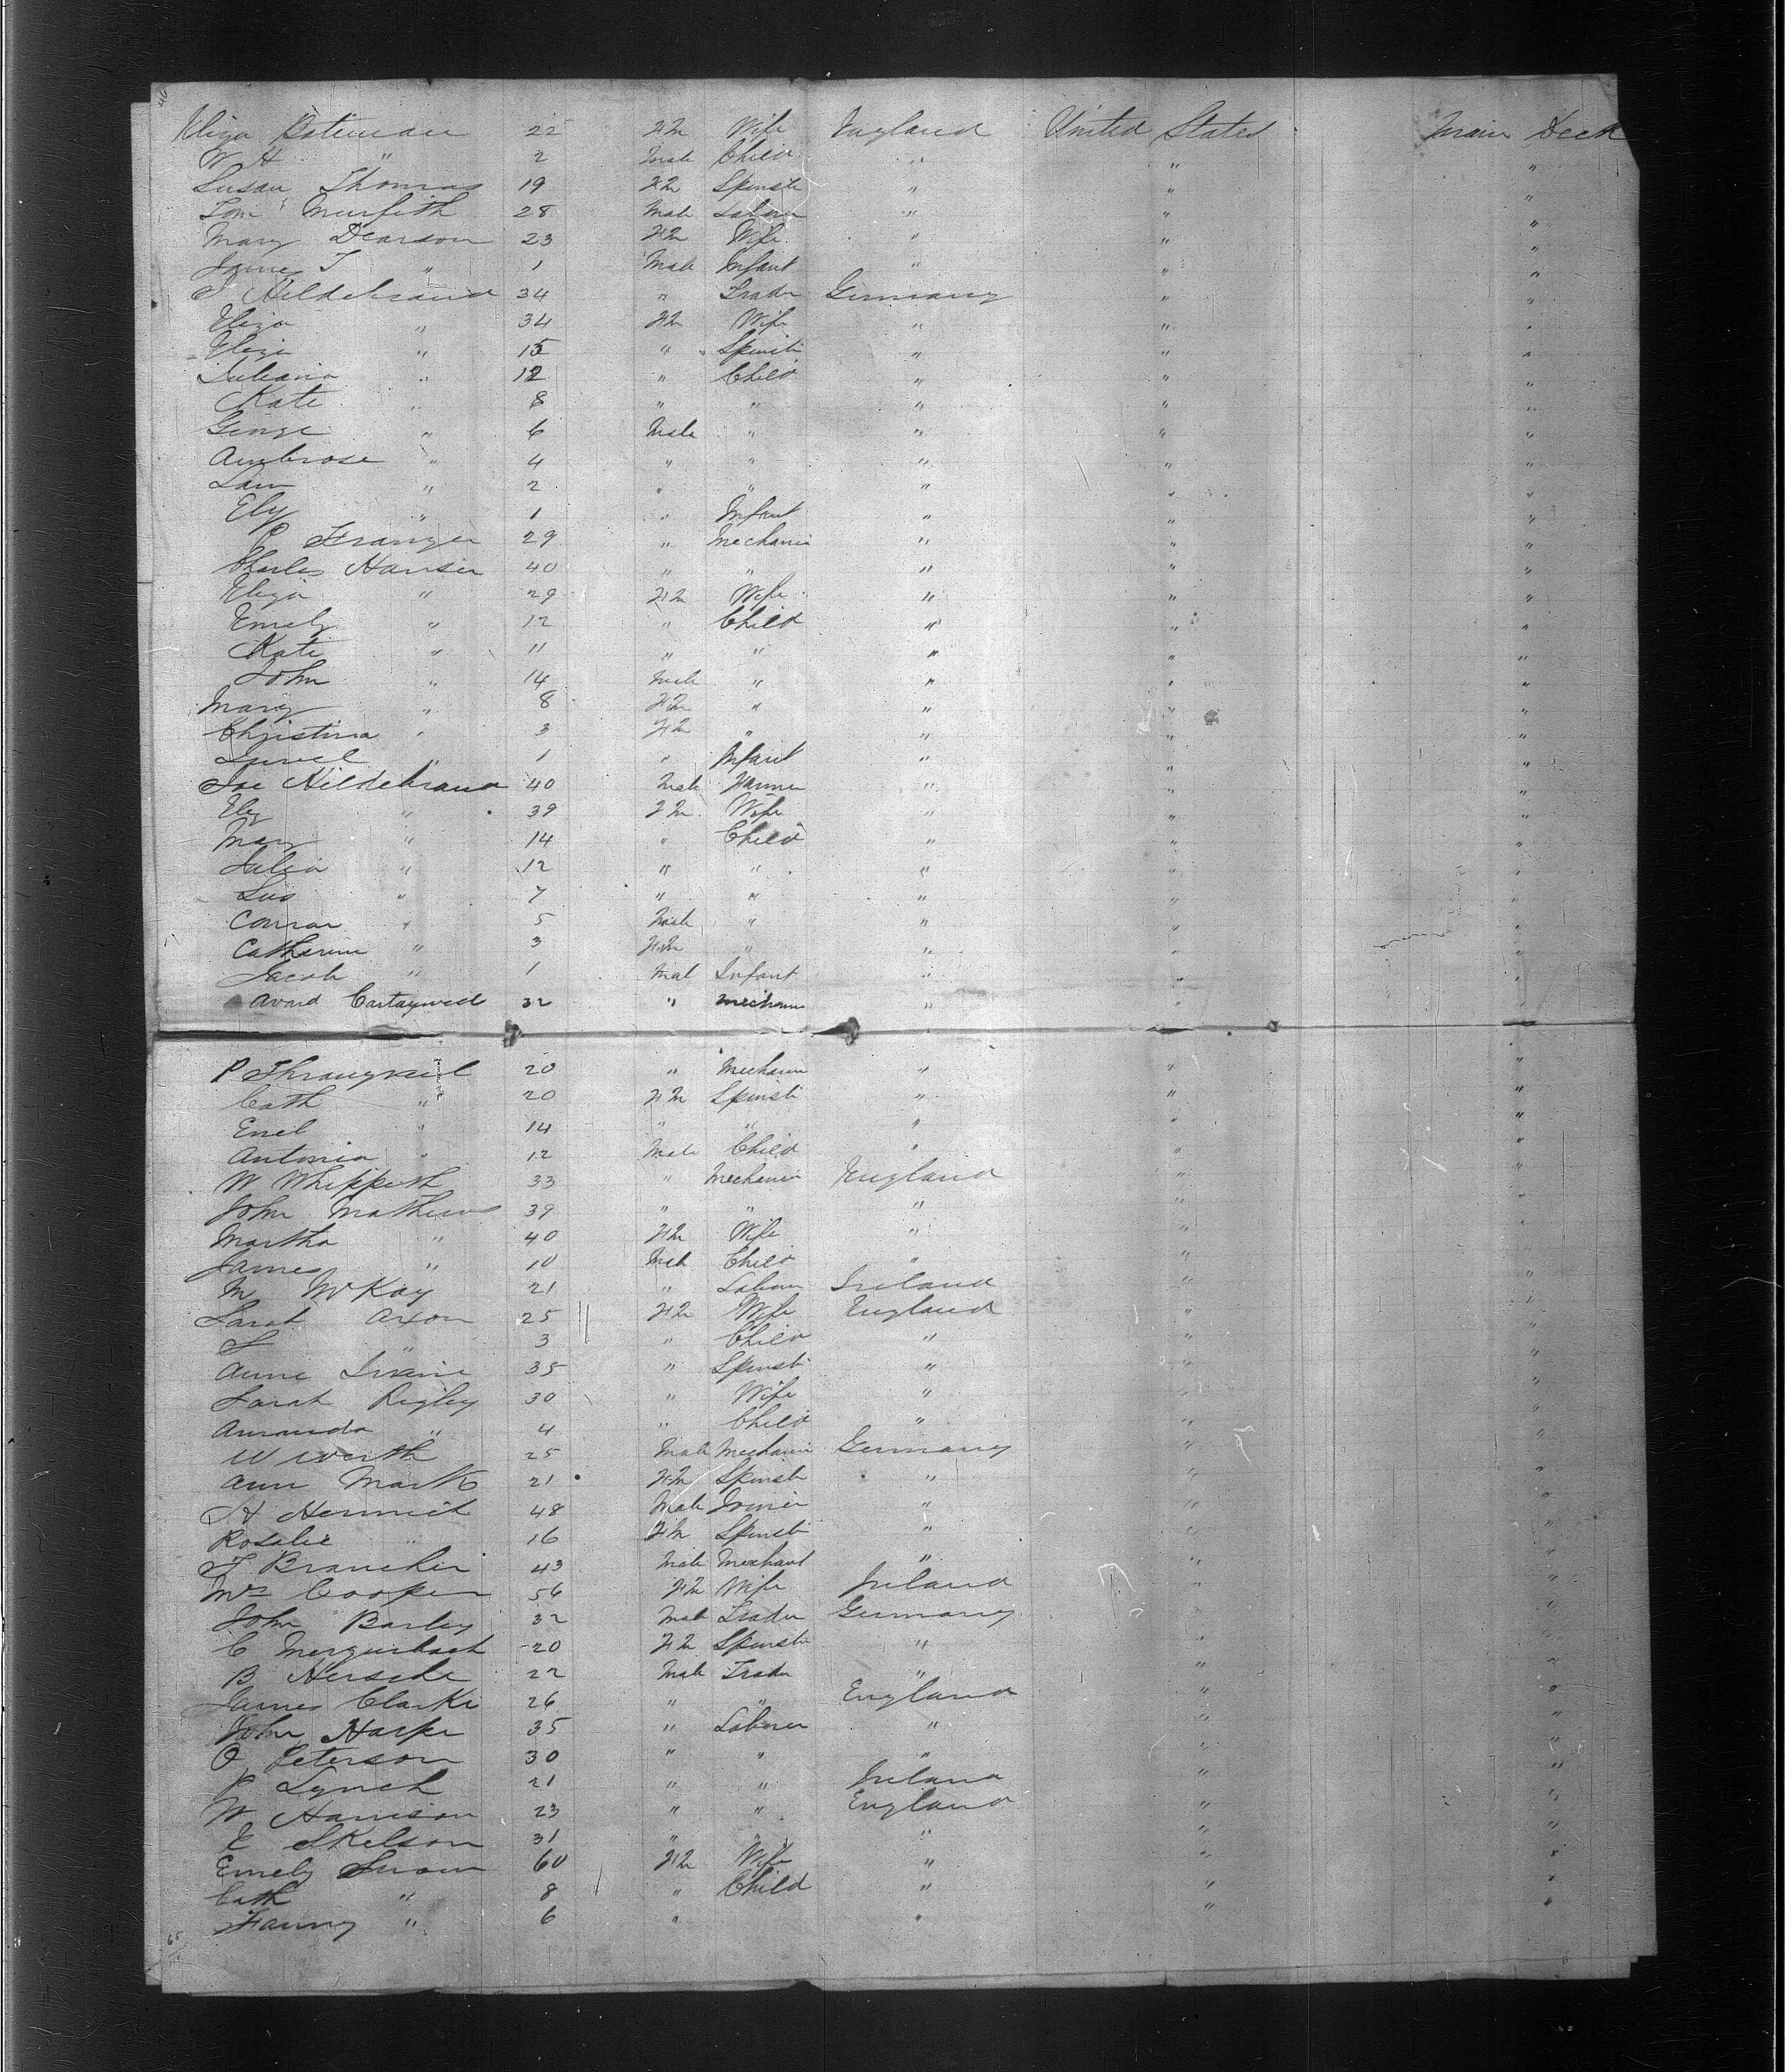 46
Eliza Bateman 22 Fm Wife England United States Main Deck
W H " 2 Male Child " " "
Susan Thomas 19 Fm Spinstr " " "
Tom Murfith 28 Male Labour " " "
Mary Dearson 23 Fm Wife " " "
James T " 1 Male Infant " " "
J Hildebrand 34 " Trader Germany " "
Eliza " 34 Fm Wife " " "
Eliza " 15 " Spinstr " " "
Juliana " 12 " Child " " "
Kate " 8 " " " " "
George " 6 Male " " " "
Ambrose " 4 " " " " "
Sam " 2 " " " " "
Ely " 1 " Infant " " "
P Franzen 29 " Mechanic " " "
Charles Hansen 40 " " " " "
Eliza " 29 Fm Wife " " "
Emely " 12 " Child " " "
Kate " 11 " " " " "
John " 14 Male " " " "
Mary " 8 Fm " " " "
Christina " 3 Fm " " " "
" 1 " Infant " " "
Joe Hildebrand 40 Male Farmer " " "
Elz " 39 Fm Wife " " "
Mary " 14 " Child " " "
Julia " 12 " " " " "
Sus " 7 " " " " "
Conrar " 5 Male " " " "
Catherine " 3 Fm " " " "
Jacob " 1 Mal Infant " " "
Avard 32 " Mechanic " " "
P 20 " Mechanic " " "
Cath " 20 Fm Spinstr " " "
Enel " 14 " " " " "
Antonia " 12 Male Child " " "
W Whippeth 33 " Mechanic England " "
John Mathews 39 " " " " "
Martha " 40 Fm Wife " " "
James " 10 Male Child " " "
M McKay 21 " Labour Ireland " "
Sarah Axon 25 Fm Wife England " "
S " 3 " Child " " "
Anne Irvine 35 " Spinstr " " "
Sarah Rigley 30 " Wife " " "
Amanda " 4 " Child " " "
W Werth 25 Male Mechanic Germany " "
Ann Mark 21 Fm Spinstr " " "
H Hennick 48 Male " " "
Rosalie " 16 Fm Spinstr " " "
F Brancher 43 Male Merchant " " "
Mrs Cooper 56 Fm Wife Ireland " "
John Barley 32 Male Trader Germany " "
C Mergurbach 20 Fm Spinstr " " "
B Hersche 22 Male Trader " " "
James Clarke 26 " " England " "
John Harpe 35 " Laborer " " "
O Peterson 30 " " " " "
P Lynch 21 " " Ireland " "
W Harrison 23 " " England " "
E Skelson 31 " " " " "
Emely Snow 60 Fm Wife " " "
Cath " 8 " Child " " "
Fanny " 6 " " " "
65